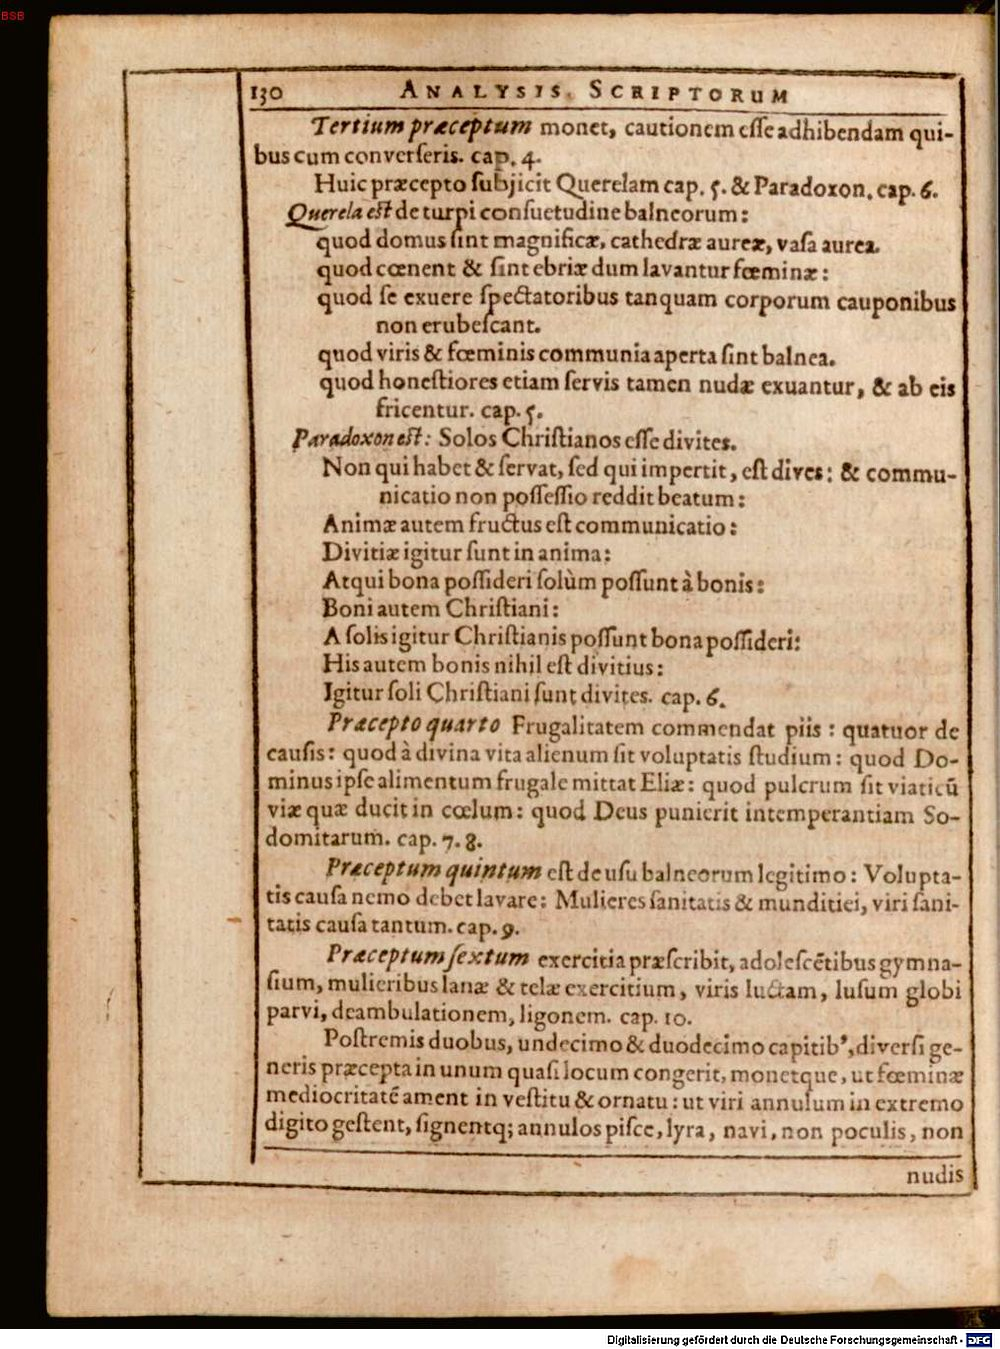 BSB
130 ANALYSIS SCRIPTORUM
Tertium præceptum monet, cautionem esse adhibendam qui-
bus cum converseris. cap. 4.
Huic præcepto subjicit Querelam cap. 5. & Paradoxon. cap. 6.
Querela est de turpi consuetudine balneorum:
quod domus sint magnificæ, cathedræ aureæ, vasa aurea.
quod cœnent & sint ebriæ dum lavantur fœminæ:
quod se exuere spectatoribus tanquam corporum cauponibus
non erubescant.
quod viris & fœminis communia aperta sint balnea.
quod honestiores etiam servis tamen nudæ exuantur, & ab eis
fricentur. cap. 5.
Paradoxon est: Solos Christianos esse divites.
Non qui habet & servat, sed qui impertit, est dives: & commu-
nicatio non possessio reddit beatum:
Animæ autem fructus est communicatio:
Divitiæ igitur sunt in anima:
Atqui bona possideri solùm possunt à bonis:
Boni autem Christiani:
A solis igitur Christianis possunt bona possideri:
His autem bonis nihil est divitius:
Igitur soli Christiani sunt divites. cap. 6.
Præcepto quarto Frugalitatem commendat piis: quatuor de
causis: quod à divina vita alienum sit voluptatis studium: quod Do-
minus ipse alimentum frugale mittat Eliæ: quod pulcrum sit viaticū
viæ quæ ducit in cœlum: quod Deus punierit intemperantiam So-
domitarum. cap. 7. 8.
Præceptum quintum est de usu balneorum legitimo: Volupta-
tis causa nemo debet lavare: Mulieres sanitatis & munditiei, viri sani-
tatis causa tantum. cap. 9.
Præceptum sextum exercitia præscribit, adolescētibus gymna-
sium, mulieribus lanæ & telæ exercitium, viris luctam, lusum globi
parvi, deambulationem, ligonem. cap. 10.
Postremis duobus, undecimo & duodecimo capitib', diversi ge-
neris præcepta in unum quasi locum congerit, monetque, ut fœminæ
mediocritatē ament in vestitu & ornatu: ut viri annulum in extremo
digito gestent, signentq; annulos pisce, lyra, navi, non poculis, non
nudis
Digitalisierung gefördert durch die Deutsche Forschungsgemeinschaft - DFG